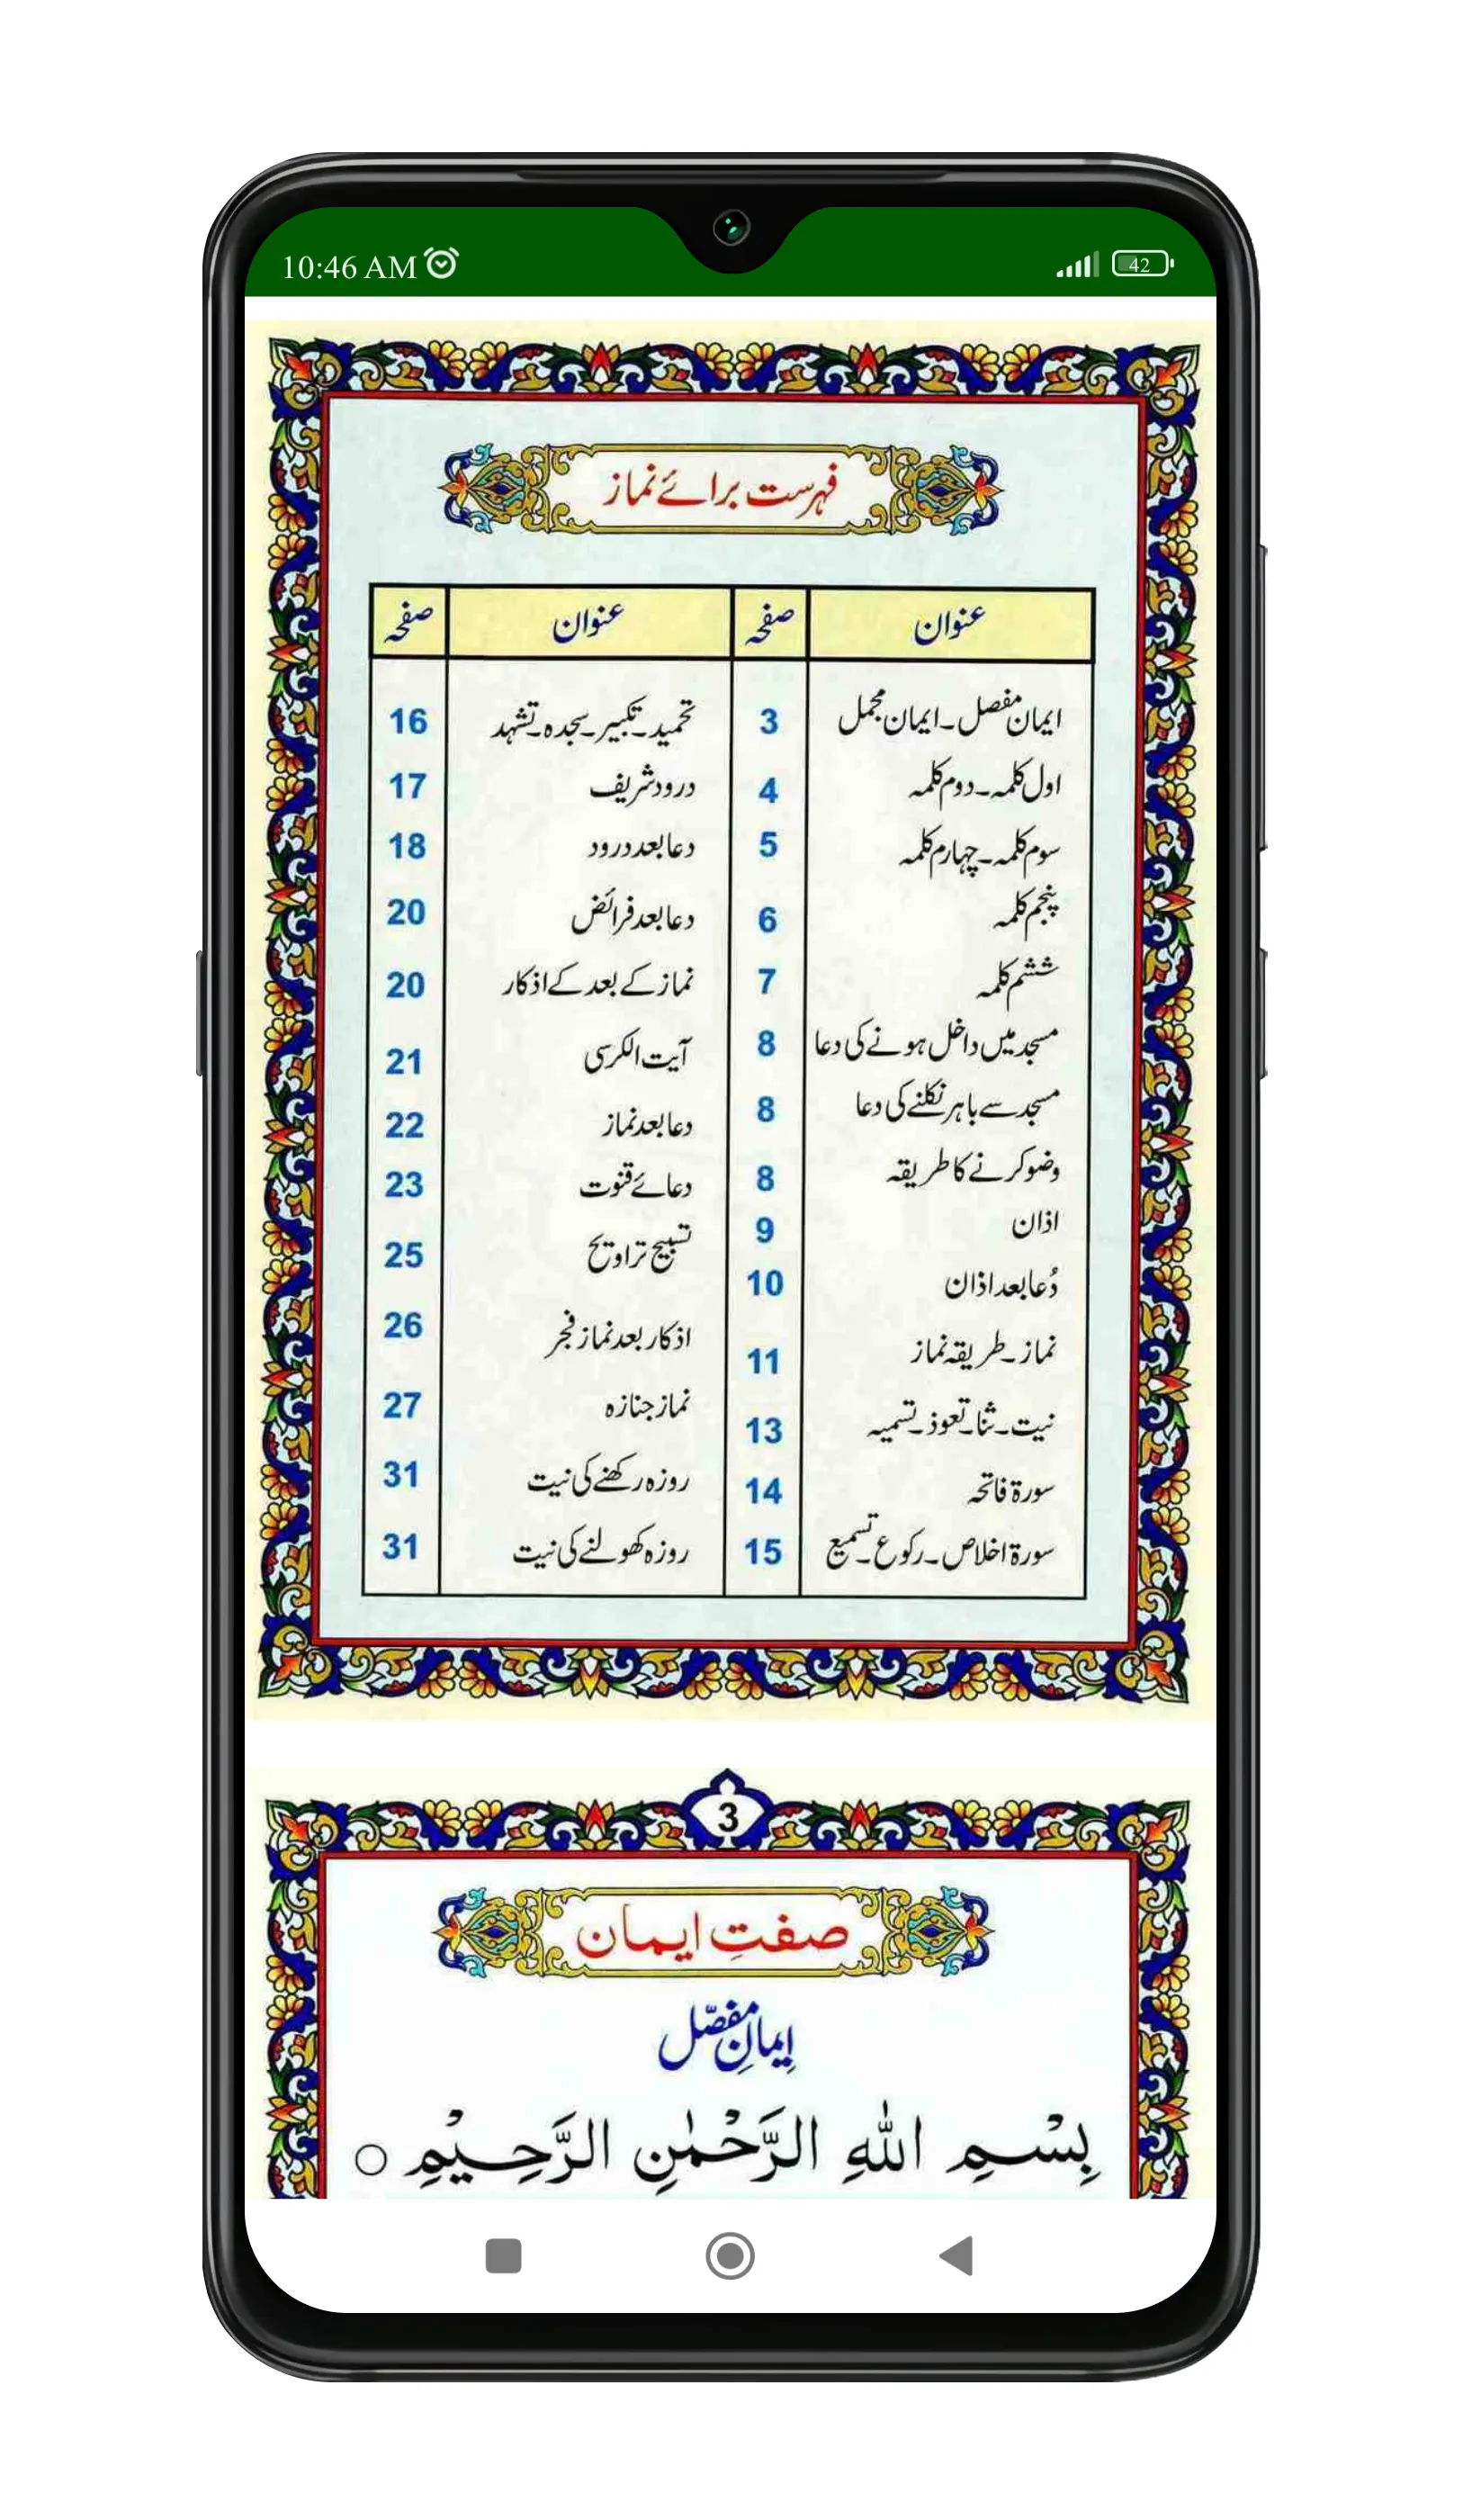 10:46 AM 42
فہرست برائے نماز
عنوان صفحہ عنوان صفحہ
ایمان مفصل۔ایمان مجمل 3 تحمید۔تکبیر۔سجدہ۔تشہد 16
اول کلمہ۔دوم کلمہ 4 درود شریف 17
سوم کلمہ۔چہارم کلمہ 5 دعا بعد درود 18
پنجم کلمہ 6 دعا بعد فرائض 20
ششم کلمہ 7 نماز کے بعد کے اذکار 20
مسجد میں داخل ہونے کی دعا 8 آیت الکرسی 21
مسجد سے باہر نکلنے کی دعا 8 دعا بعد نماز 22
وضو کرنے کا طریقہ 8 دعائے قنوت 23
اذان 9 تسبیح تراویح 25
دُعا بعد اذان 10 اذکار بعد نماز فجر 26
نماز۔طریقہ نماز 11 نماز جنازہ 27
نیت۔ثنا۔تعوذ۔تسمیہ 13 روزہ رکھنے کی نیت 31
سورۃ فاتحہ 14 روزہ کھولنے کی نیت 31
سورۃ اخلاص۔رکوع۔تسمیع 15
3
صفتِ ایمان
اِیمانِ مفصّل
بِسْمِ اللّٰهِ الرَّحْمٰنِ الرَّحِيْمِ ○